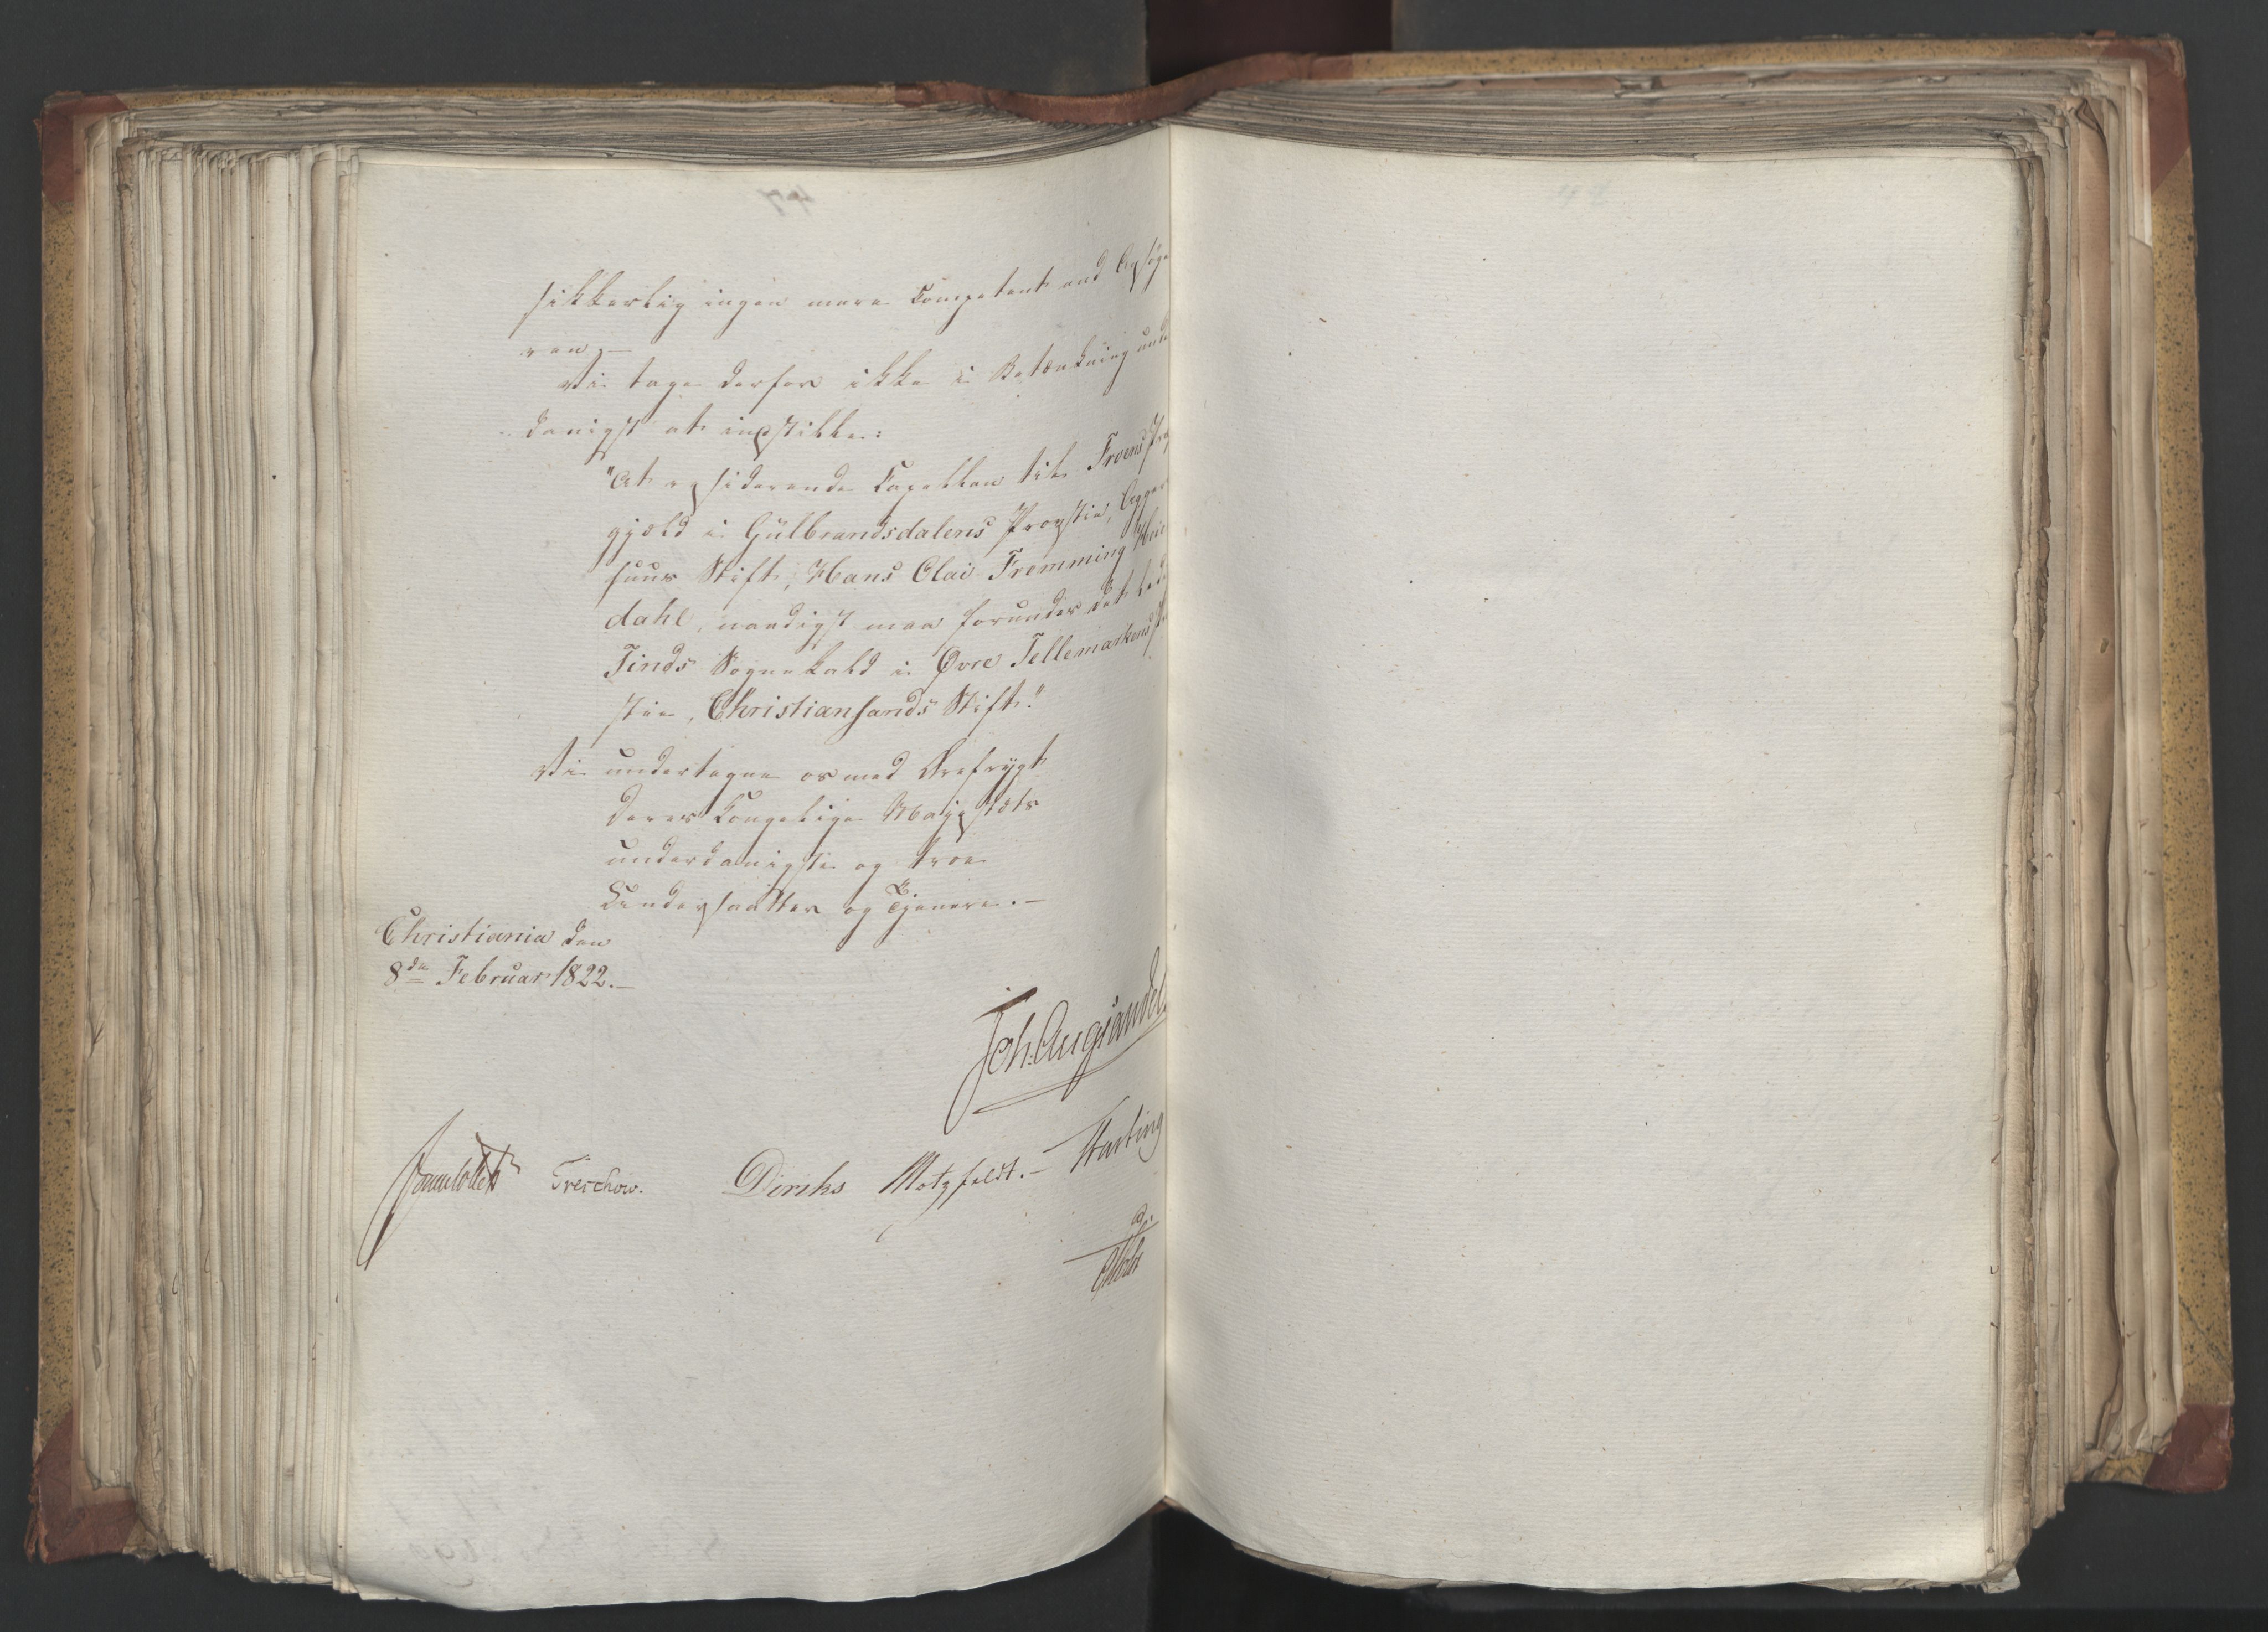 sikkerlig ingen mere Competent end Ansøge
ren,-
Vi tage derfor ikke i Betænkning unde
danigst at indstille:
"At residerende Capellan til Froens Præ
gjeld i Gulbrandsdalens Provstie, Agger
huus Stift, Hans Olai Fremming
dahl, naadigst maa forundes det led
Tinds Sognekald i Øvre Tellemarkens
stie, Christiansands Stift."
Vi undertegne os med Ærefrygt
Deres Kongelige Majestæts
underdanigste og troe
Undersaatter og Tjenere.-
Christiania den
8de Februar 1822.-
Joh. Aug. Sandel
Sommerhielm? Treschow. Diriks Motzfeldt.- Hartvig